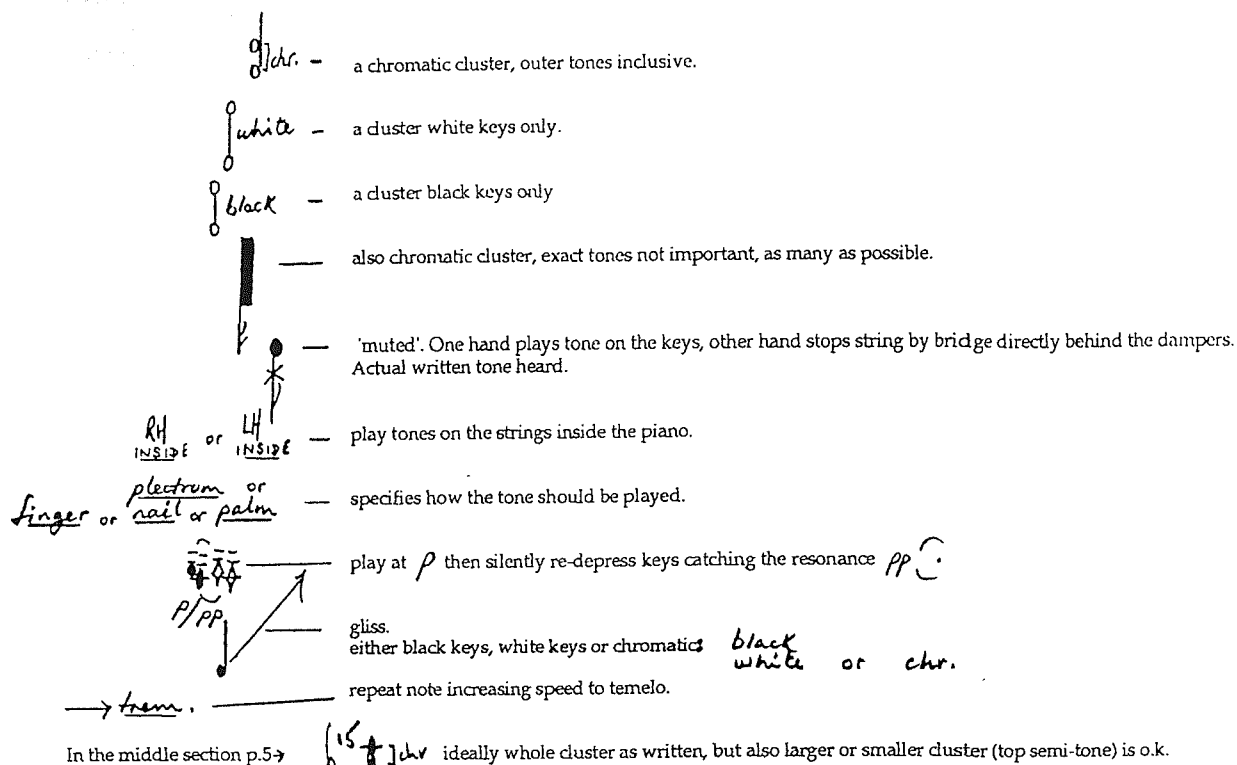 ]chr. – a chromatic cluster, outer tones inclusive.
white – a cluster white keys only.
black – a cluster black keys only
— also chromatic cluster, exact tones not important, as many as possible.
— 'muted'. One hand plays tone on the keys, other hand stops string by bridge directly behind the dampers.
Actual written tone heard.
RH INSIDE or LH INSIDE — play tones on the strings inside the piano.
plectrum or
finger or nail or palm — specifies how the tone should be played.
— play at p then silently re-depress keys catching the resonance pp
p/pp
gliss.
either black keys, white keys or chromatics black
white or chr.
→ trem. — repeat note increasing speed to temelo.
In the middle section p.5→ 15 ]chr ideally whole cluster as written, but also larger or smaller cluster (top semi-tone) is o.k.